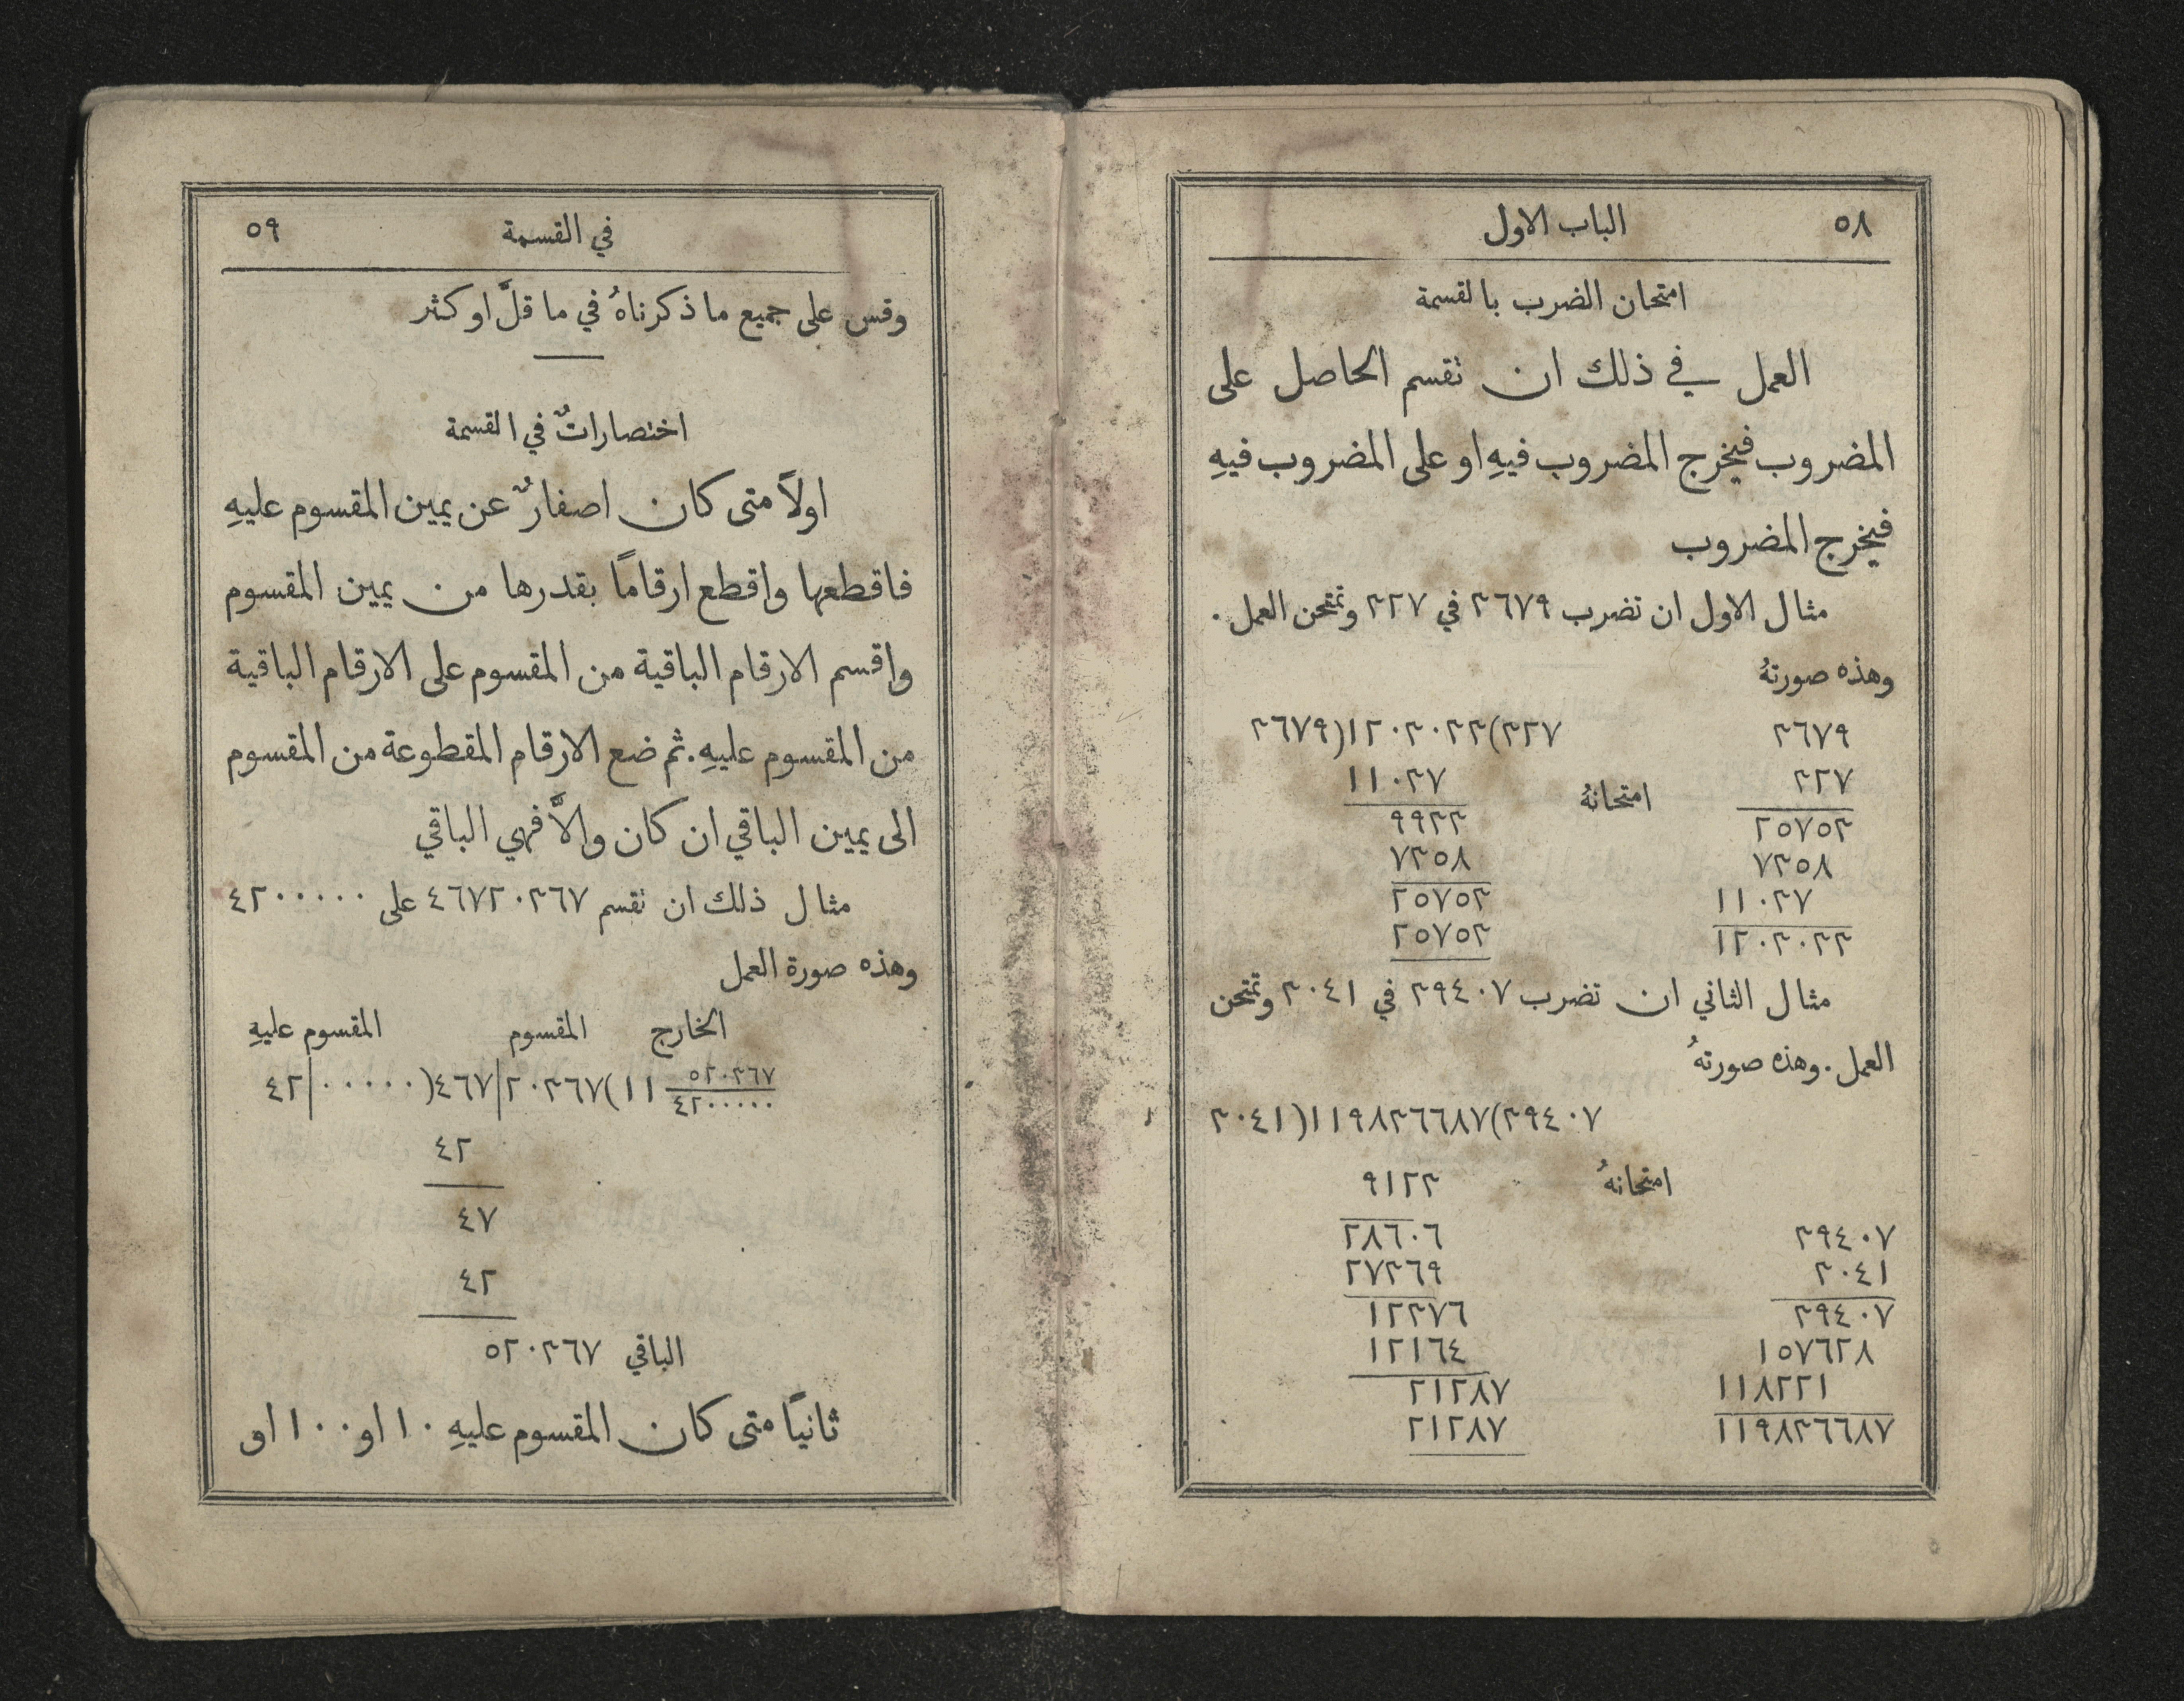 ٥٨ الباب الاول
امتحان الضرب بالقسمة
العمل في ذلك ان تقسم الحاصل على
المضروب فيخرج المضروب فيهِ او على المضروب فيهِ
فيخرج المضروب
مثال الاول ان تضرب ٣٦٧٩ في ٣٢٧ وتمتحن العمل.
وهذه صورتهُ
٣٦٧٩ ٣٦٧٩)١٢٠٣٠٣٣(٣٢٧
٣٢٧ امتحانهُ ١١٠٣٧
٢٥٧٥٣ ٩٩٣٣
٧٣٥٨ ٧٣٥٨
١١٠٣٧ ٢٥٧٥٣
١٢٠٣٠٣٣ ٢٥٧٥٣
مثال الثاني ان تضرب ٣٩٤٠٧ في ٣٠٤١ وتمتحن
العمل. وهذه صورتهُ
٣٠٤١)١١٩٨٣٦٦٨٧(٣٩٤٠٧
امتحانهُ ٩١٢٣
٣٩٤٠٧ ٢٨٦٠٦
٣٠٤١ ٢٧٣٦٩
٣٩٤٠٧ ١٢٣٧٦
١٥٧٦٢٨ ١٢١٦٤
١١٨٢٢١ ٢١٢٨٧
١١٩٨٣٦٦٨٧ ٢١٢٨٧
في القسمة ٥٩
وقس على جميع ما ذكرناهُ في ما قلَّ او كثر
اختصاراتٌ في القسمة
اولاً متى كان اصفارٌ عن يمين المقسوم عليهِ
فاقطعها واقطع ارقاماً بقدرها من يمين المقسوم
واقسم الارقام الباقية من المقسوم على الارقام الباقية
من المقسوم عليهِ. ثم ضع الارقام المقطوعة من المقسوم
الى يمين الباقي ان كان والاَّ فهي الباقي
مثال ذلك ان تقسم ٤٦٧٢٠٣٦٧ على ٤٢٠٠٠٠٠
وهذه صورة العمل
الخارج المقسوم المقسوم عليهِ
٤٢|٠٠٠٠٠)٤٦٧|٢٠٣٦٧(١١ ٥٢٠٣٦٧/٤٢٠٠٠٠٠
٤٢
٤٧
٤٢
الباقي ٥٢٠٣٦٧
ثانياً متى كان المقسوم عليهِ ١٠ او ١٠٠ او